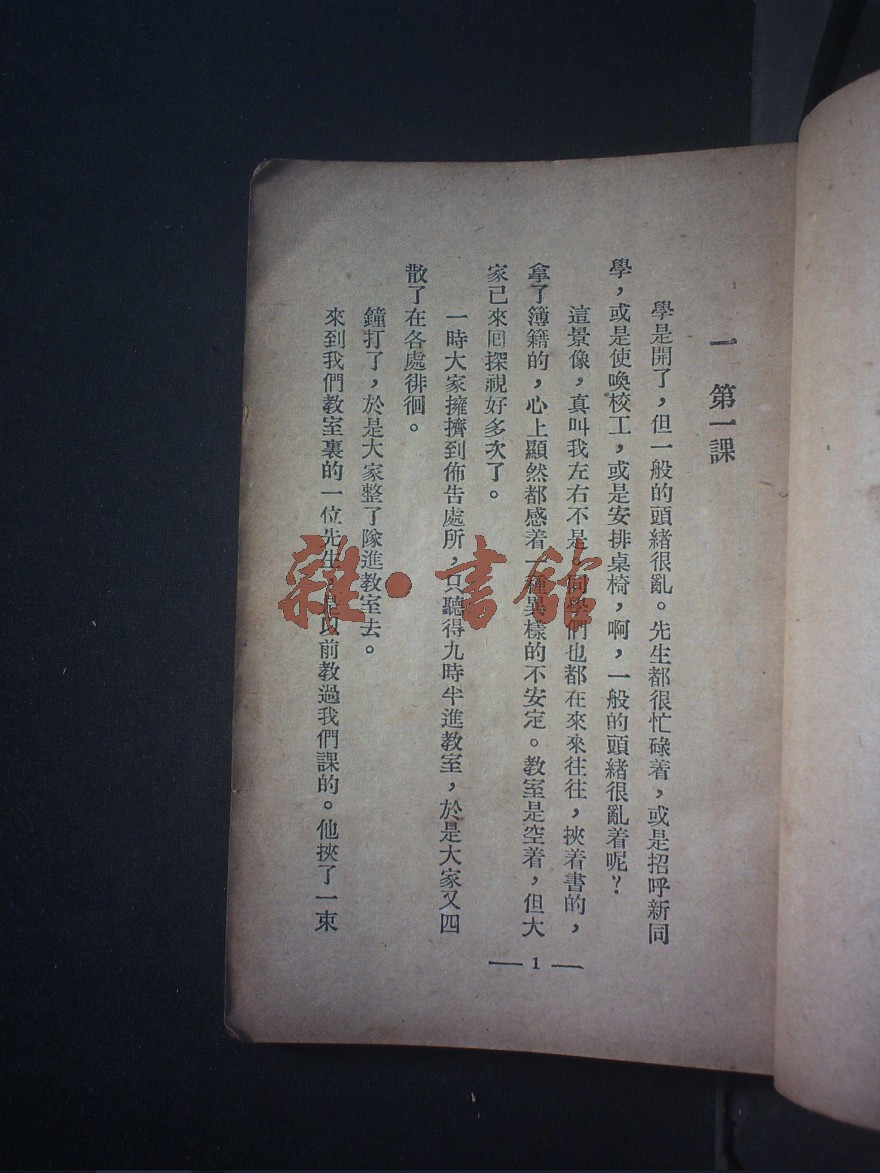 一　第一課
學是開了，但一般的頭緒很亂。先生都很忙碌着，或是招呼新同
學，或是使喚校工，或是安排桌椅，啊，一般的頭緒很亂着呢？
這景像，真叫我左右不是，同學們也都在來來往往，挾着書的，
拿了簿籍的，心上顯然都感着一種異樣的不安定。教室是空着，但大
家已來回探視好多次了。
一時大家擁擠到佈告處所，只聽得九時半進教室，於是大家又四
散了在各處徘徊。
鐘打了，於是大家整了隊進教室去。
來到我們教室裏的一位先生，是以前教過我們課的。他挾了一束
— 1 —
雜·書館